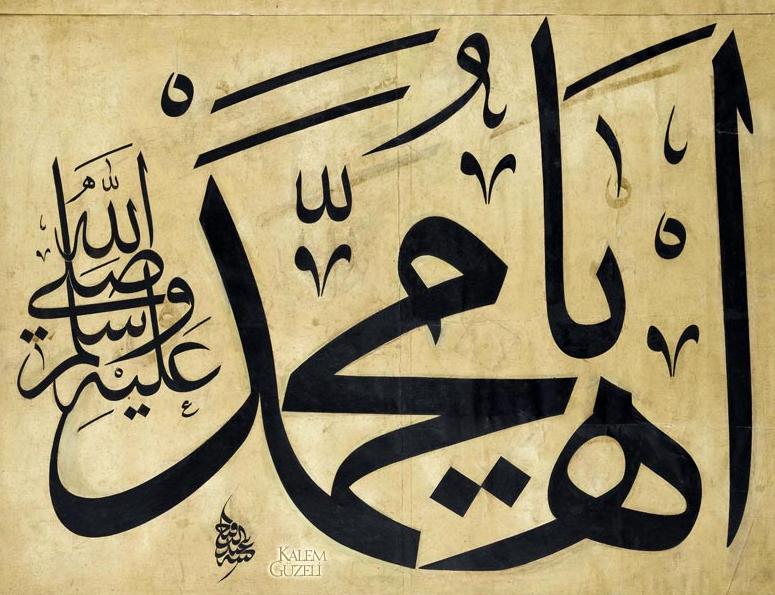 اه يا محمد
صلى الله عليه وسلم
KALEM
GÜZELİ